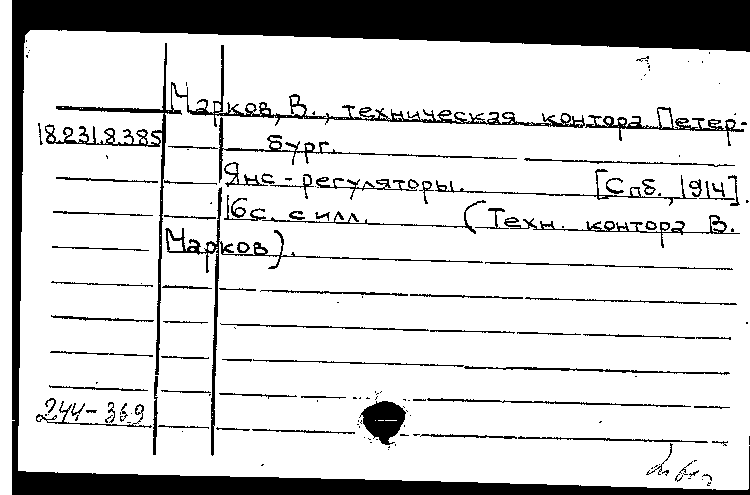 Марков, В., техническая контора Петер-
18.231.8.385 бург.
Янс-регуляторы. [Спб., 1914].
16с. с илл. (Техн. контора В.
Марков).
244-369